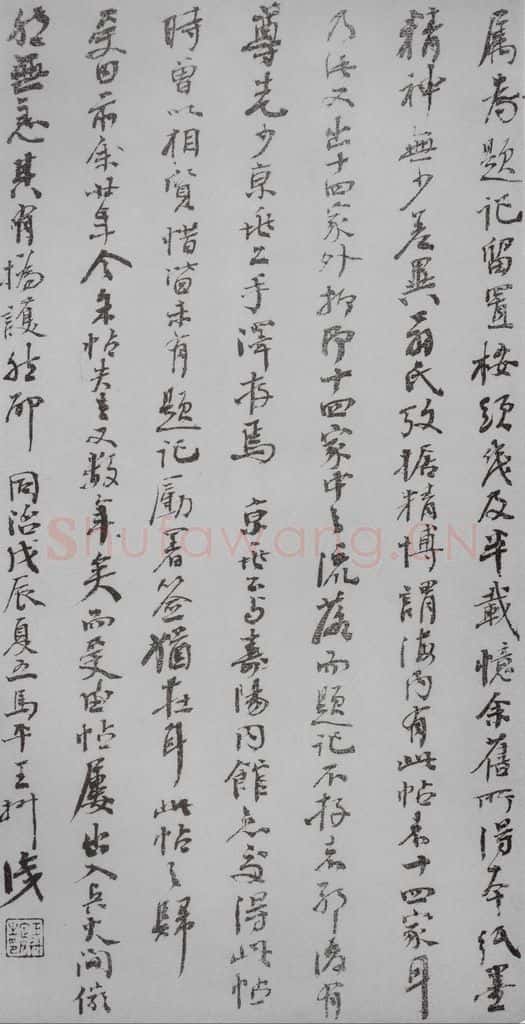 属為題記留置桉頭幾及半載憶余舊所得本紙墨
精神無少差異翁氏攷據精博謂海內有此帖者十四家耳
乃又出十四家外抑即十四家中之流落而題記不存者耶後有
尊先少京兆公手澤存焉 京兆公與壽陽得此帖
時曾以相質惜皆未有題記勵署簽猶在耳此帖之歸
受田前余廿年今余帖失去又數年矣而受田帖屢出入兵火間儼
然無恙其有撝護然耶 同治戊辰夏五馬平王拯識
Shufawang.CN